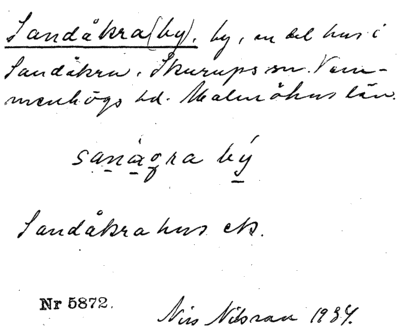 Sandåkra (by). by, en del hus i
Sandåkra, Skurups sn. Vem-
menhögs hd. Malmöhus län.
sanågra bý
Sandåkra hus etc.
Nr 5872.
Nils Nilsson 1934.